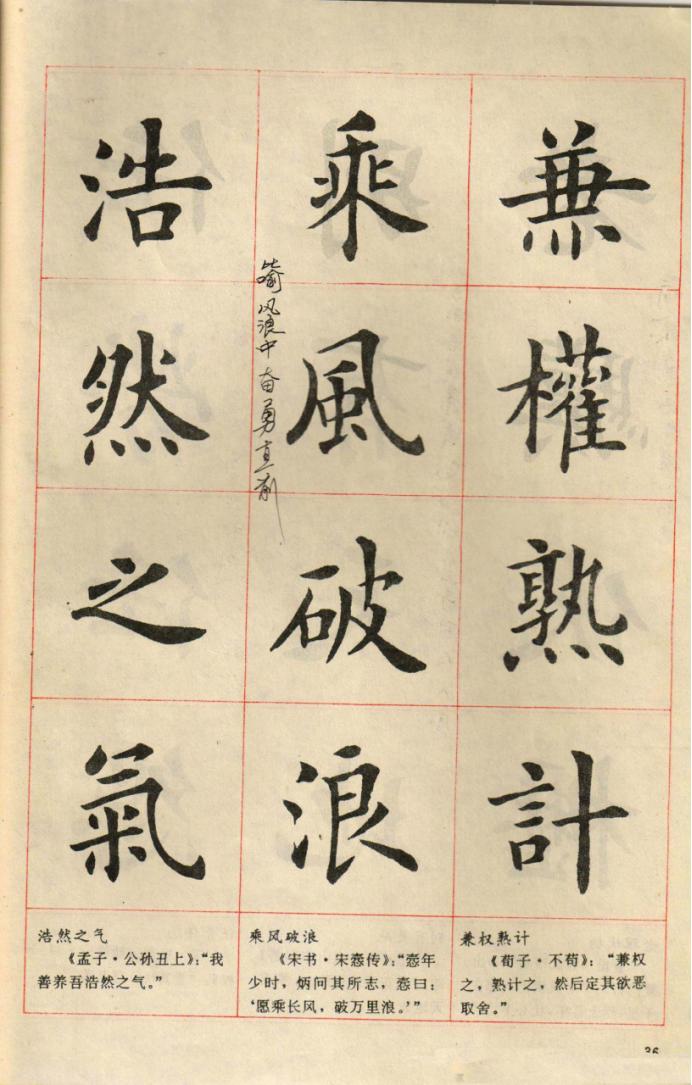 兼權熟計
乘風破浪
浩然之氣
喻风浪中奋勇直前
浩然之气
《孟子·公孙丑上》：“我
善养吾浩然之气。”
乘风破浪
《宋书·宋悫传》：“悫年
少时，炳问其所志，悫曰：
‘愿乘长风，破万里浪。’”
兼权熟计
《荀子·不苟》：“兼权
之，熟计之，然后定其欲恶
取舍。”
36